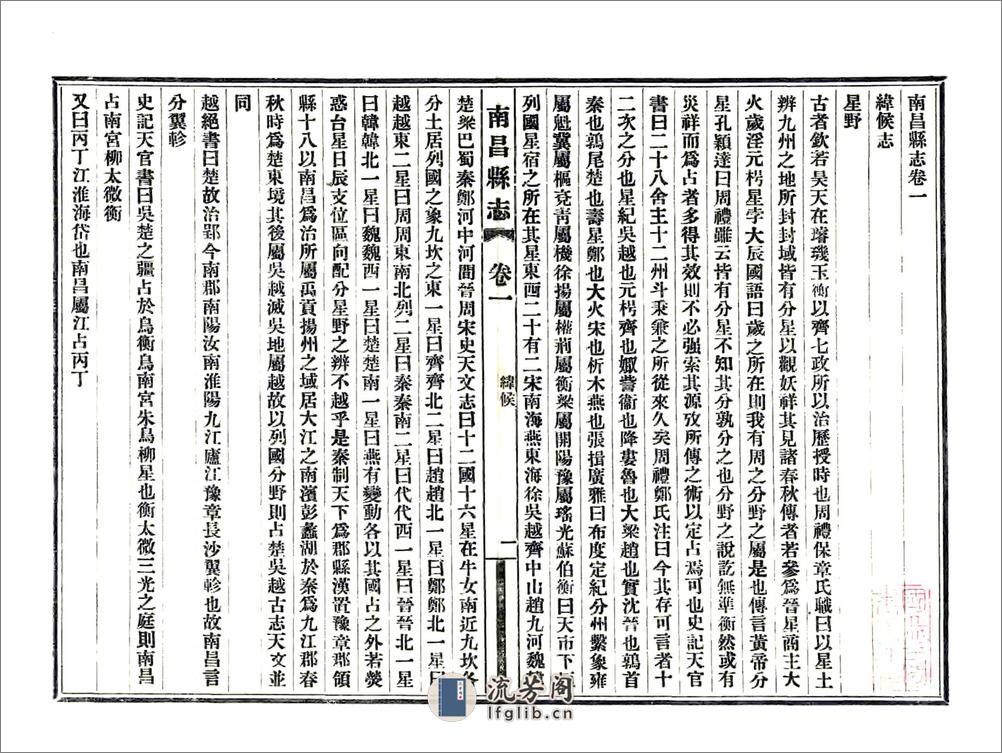 南昌縣志卷一
緯候志
星野
古者欽若昊天在璿璣玉衡以齊七政所以治歷授時也周禮保章氏職曰以星土
辨九州之地所封封域皆有分星以觀妖祥其見諸春秋傳者若參爲晉星商主大
火歲淫元枵星孛大辰國語曰歲之所在則我有周之分野之屬是也傳言黃帝分
星孔穎達曰周禮雖云皆有分星不知其分孰分之也分野之說訖無準衡然或有
災祥而爲占者多得其效則不必強索其源攷所傳之術以定占焉可也史記天官
書曰二十八舍主十二州斗秉兼之所從來久矣周禮鄭氏注曰今其存可言者十
二次之分也星紀吳越也元枵齊也娵訾衞也降婁魯也大梁趙也實沈晉也鶉首
秦也鶉尾楚也壽星鄭也大火宋也析木燕也張揖廣雅曰布度定紀分州繫象雍
屬魁冀屬樞兗靑屬機徐揚屬權荊屬衡梁屬開陽豫屬瑤光蘇伯衡曰天市下
列國星宿之所在其星東西二十有二宋南海燕東海徐吳越齊中山趙九河魏
南昌縣志
卷一
緯候
一
楚梁巴蜀秦鄭河中河間晉周宋史天文志曰十二國十六星在牛女南近九坎各
分土居列國之象九坎之東一星曰齊齊北二星曰趙趙北一星曰鄭鄭北一星曰
越越東二星曰周周東南北列二星曰秦秦南二星曰代代西一星曰晉晉北一星
曰韓韓北一星曰魏魏西一星曰楚楚南一星曰燕有變動各以其國占之外若熒
惑台星日辰支位區向配分星野之辨不越乎是秦制天下爲郡縣漢置豫章郡領
縣十八以南昌爲治所屬禹貢揚州之域居大江之南濱彭蠡湖於秦爲九江郡春
秋時爲楚東境其後屬吳越滅吳地屬越故以列國分野則占楚吳越古志天文並
同
越絕書曰楚故治郢今南郡南陽汝南淮陽九江廬江豫章長沙翼軫也故南昌言
分翼軫
史記天官書曰吳楚之疆占於鳥衡鳥南宮朱鳥柳星也衡太微三光之庭則南昌
占南宮柳太微衡
又曰丙丁江淮海岱也南昌屬江占丙丁
流芳阁
lfglib.cn